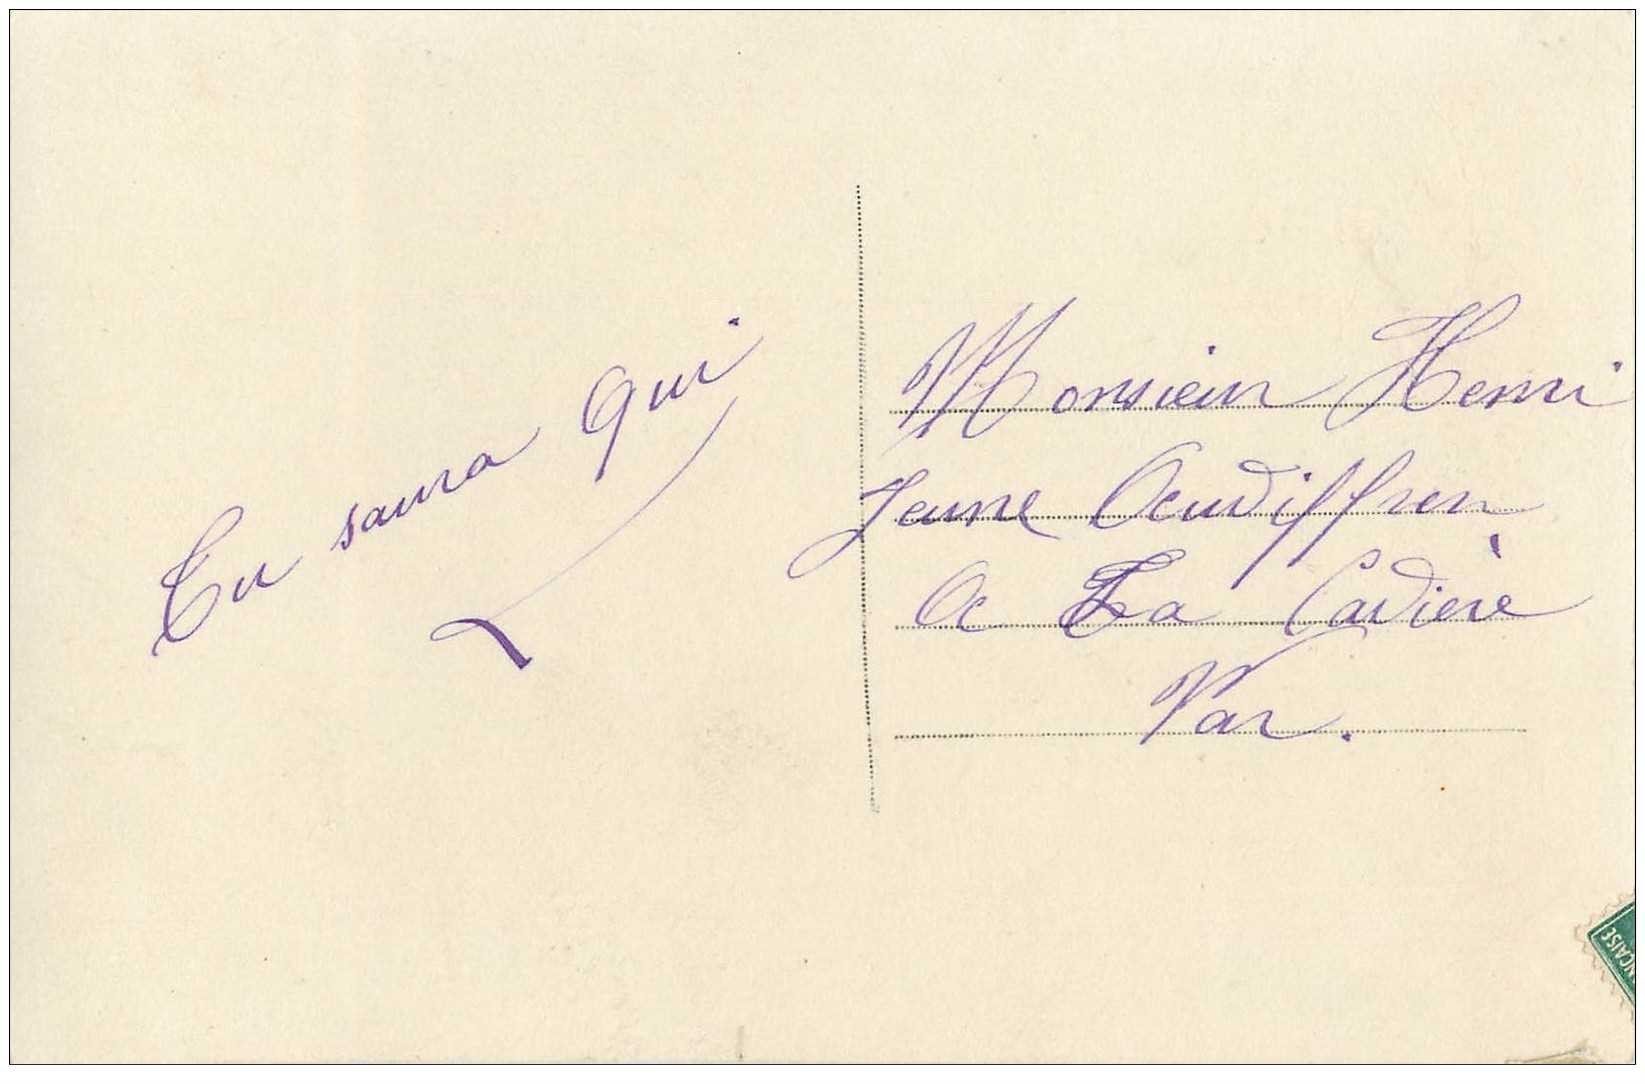 Tu saura qui
Monsieur Henri
Jeune Audiffren
A La Cadière
Var.
NÇAISE